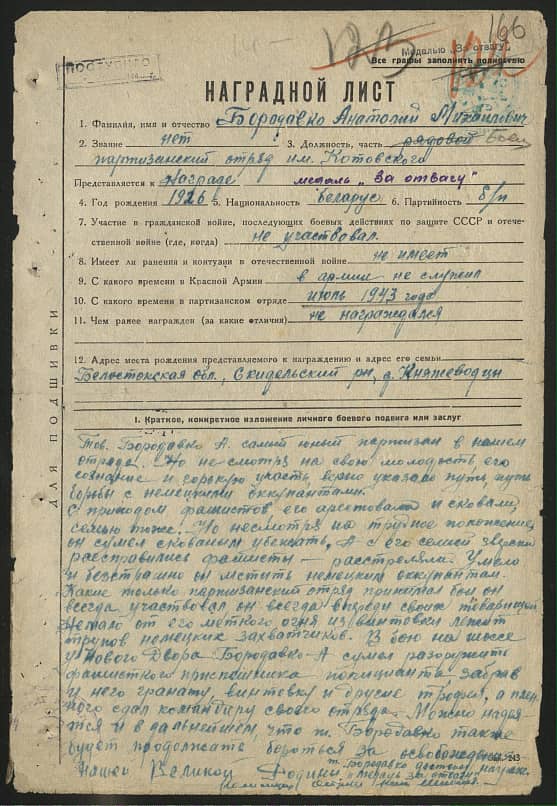 196
125
Медалью „За отвагу"
Все графы заполнять полностью
ПОСТУПИЛО
НАГРАДНОЙ ЛИСТ
1. Фамилия, имя и отчество Бородавко Анатолий Михайлович
2. Звание нет 3. Должность, часть рядовой боец
партизанский отряд им. Котовского
Представляется к награде медаль „За отвагу"
4. Год рождения 1926 5. Национальность беларус 6. Партийность б/п
7. Участие в гражданской войне, последующих боевых действиях по защите СССР и отече-
ственной войне (где, когда) не участвовал.
8. Имеет ли ранения и контузии в отечественной войне не имеет
9. С какого времени в Красной Армии в армии не служил
10. С какого времени в партизанском отряде июль 1943 года
11. Чем ранее награжден (за какие отличия) не награждался
12. Адрес места рождения представляемого к награждению и адрес его семьи
Белостокская обл., Скидельский рн, д. Княжеводцы
ДЛЯ ПОДШИВКИ
I. Краткое, конкретное изложение личного боевого подвига или заслуг
Тов. Бородавко А. самый юный партизан в нашем
отряде. Но не смотря на свою молодость его
сознание и горькую участь, верно указало путь, путь
борьбы с немецкими оккупантами.
С приходом фашистов его арестовали и сковали,
семью тоже. Но несмотря на трудное положение
он сумел скованым убежать. А с его семьей зверски
расправились фашисты — расстреляли. Умело
и безстрашно он мстить немецким оккупантам.
Какие только партизанский отряд принимал бои он
всегда участвовал он всегда впереди своих товарищей
Немало от его меткого огня из винтовки лежит
трупов немецких захватчиков. В бою на шоссе
у Нового Двора Бородавко А сумел разоружить
фашисткого приспешника полицианта, забрав
у него гранату, винтовку и другие трофеи, а плен-
ного сдал командиру своего отряда. Можно надея-
тся и в дальнейшем, что т. Бородавко также
будет продолжать бороться за освобождение
нашей Великой Родины. т. Бородавко достоин награж.
"медаль за отвагу"
243